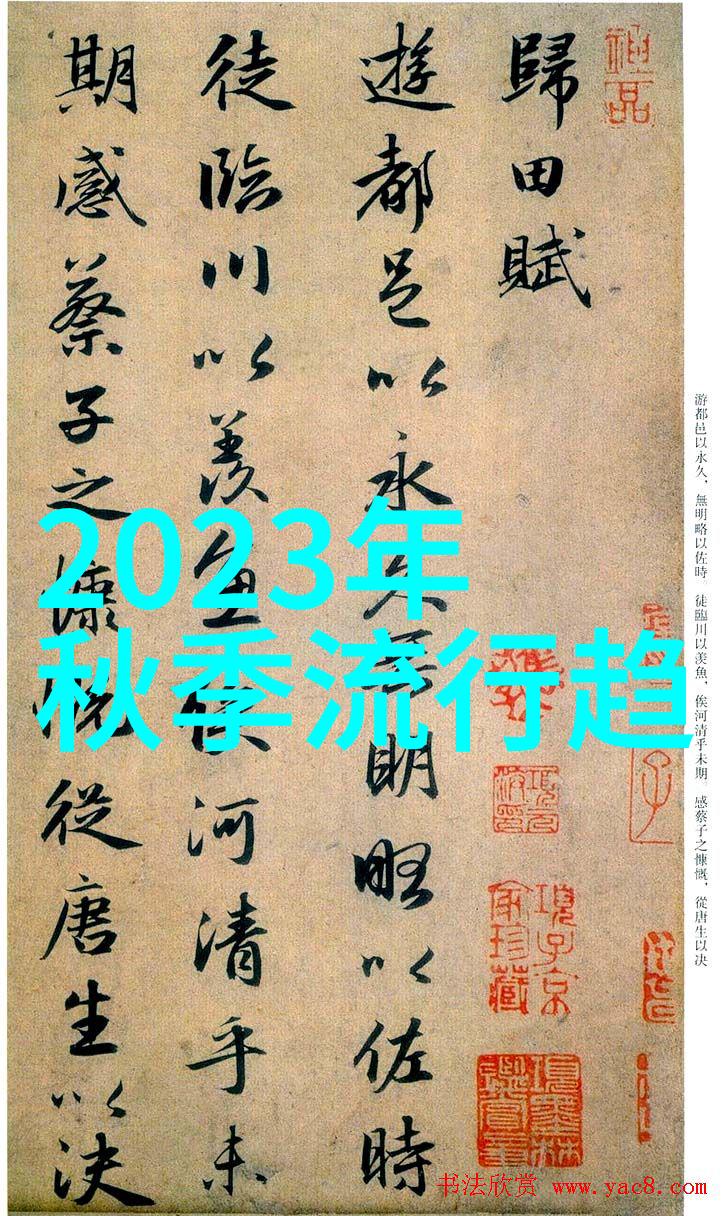 神品
歸田賦
遊都邑以永久無明略以佐時
徒臨川以羨魚俟河清乎未
期感蔡子之慷慨從唐生以決
2023年
秋季流行趋
游都邑以永久，無明略以佐時。徒臨川以羨魚，俟河清乎未期。感蔡子之慷慨，從唐生以决
項子京家珍藏
項墨林鑑賞章
书法欣赏 www.yac8.com